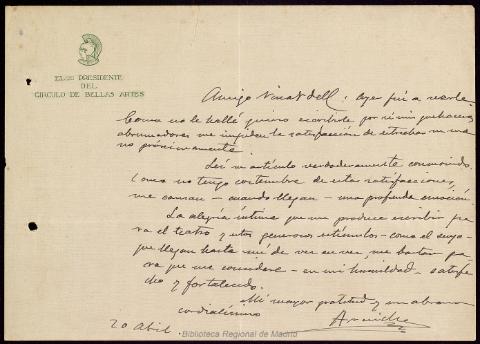 EL PRESIDENTE
DEL
CIRCULO DE BELLAS ARTES
Amigo : Ayer fuí a verle.
Como no le hallé quiero escribirle por si mis quehaceres
abrumadores me impiden la satisfacción de estrechar su ma
no próximamente.
Leí su artículo verdaderamente conmovido.
Como no tengo costumbre de estas satisfacciones,
me causan – cuando llegan – una profunda emoción.
La alegría íntima que me produce escribir pa
ra el teatro y estos generosos estímulos – como el suyo –
que llegan hasta mí de vez en vez, me bastan pa
ra que me considere – en mi humildad – satisfe
cho y fortalecido.
Mi mayor gratitud y un abrazo
cordialísimo
Arniches
20 Abril.
Biblioteca Regional de Madrid